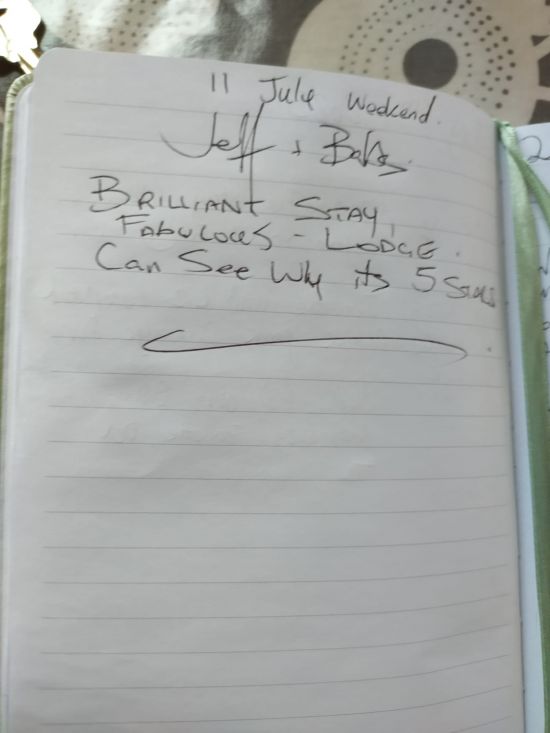 11 July Weekend.
Jeff + Babs
BRILLIANT STAY,
FABULOUS - LODGE.
Can See Why its 5 Stars
2